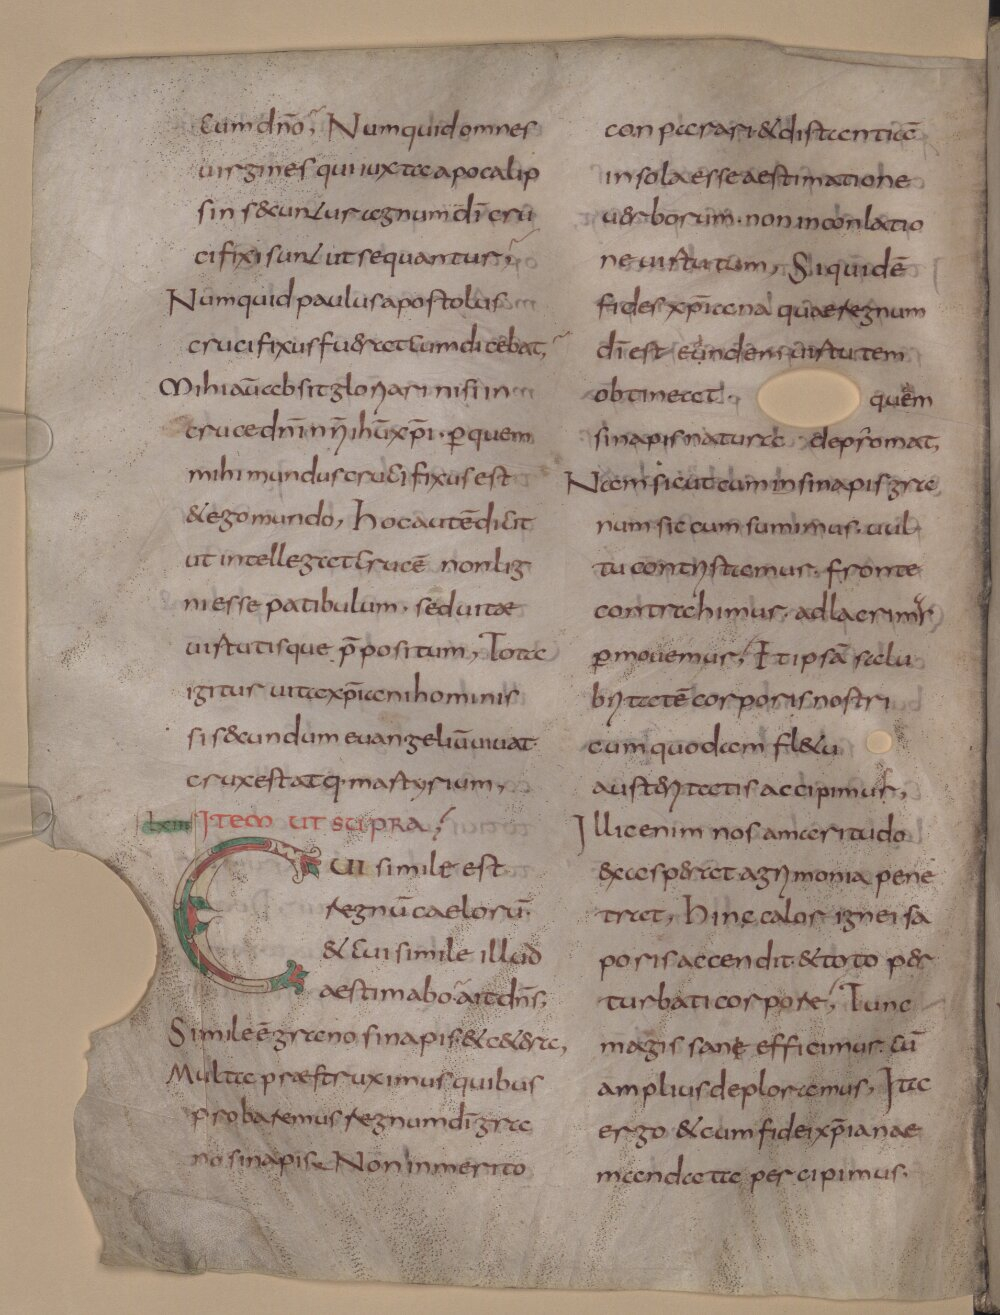 cum dnō, Numquid omnes
uirgines qui iuxta apocalip
sin secuntur agnum dī cru
cifixi sunt ut sequantur,
Numquid paulus apostolus
crucifixus fuerat cum dicebat,
Mihi aū absit gloriari nisi in
cruce dnī nrī ihū xpī · ꝑ quem
mihi mundus crucifixus est
& ego mundo, Hoc autē dicit
ut intellegat crucē non lig
ni esse patibulum · sed uitae
uirtutisque p̄positum, Tota
igitur uita xpiani hominis
si secundum euangeliū uiuat
crux est atq· martyrium,
lxiii Item ut supra,
Cui simile est
regnū caelorū·
& cui simile illud
aestimabo ait dn̄s,
Simile ē grano sinapis & c&era,
Multa praestruximus quibus
probaremus regnum dī gra
no sinapis Non inmerito
conparari & distantia
in sola esse aestimatione
uerborum · non in conlatio
ne uirtutum, Siquidē
fides xpiana quae regnum
dī est eundem uirtutem
obtineat · quem
sinapis natura depromat,
Nam sicut cum sinapis gra
num sic cum sumimus · uul
tu contristamur · fronte
contrahimur · ad lacrimas
ꝑmouemur, Et ipsā salu
britatē corporis nostri
cum quodam fl&u
austeritatis accipimus,
Illic enim nos amaritudo
& asperat agrimonia pene
trat, Hinc calor ignei sa
poris accendit & toto per
turbati corpore, Tunc
magis sane efficimur · cū
amplius deploramus, Ita
ergo & cum fidei xpianae
mandata percipimus·